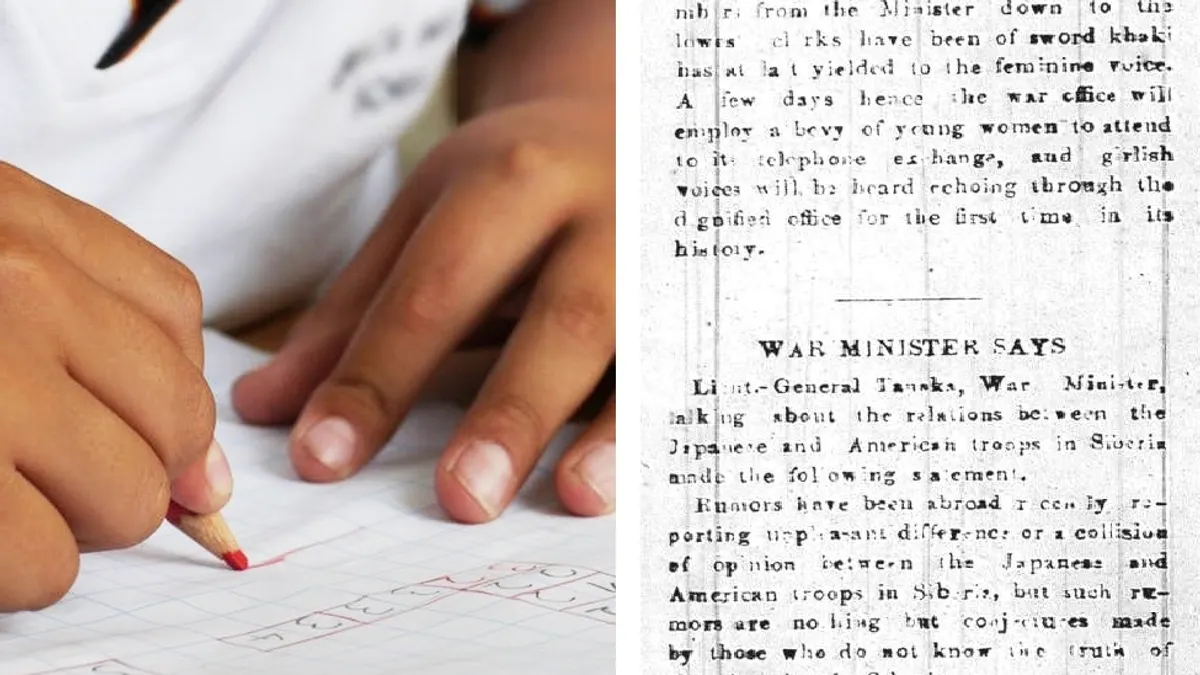 from the Minister down to the
clerks have been of sword khaki
has at last yielded to the feminine voice.
A few days hence the war office will
employ a bevy of young women to attend
to its telephone exchange, and girlish
voices will be heard echoing through the
dignified office for the first time in its
history.
WAR MINISTER SAYS
Lieut.-General Tanaka, War Minister,
talking about the relations between the
Japanese and American troops in Siberia
made the following statement.
Rumors have been abroad recently re-
porting unpleasant difference or a collision
of opinion between the Japanese and
American troops in Siberia, but such ru-
mors are nothing but conjectures made
by those who do not know the truth of